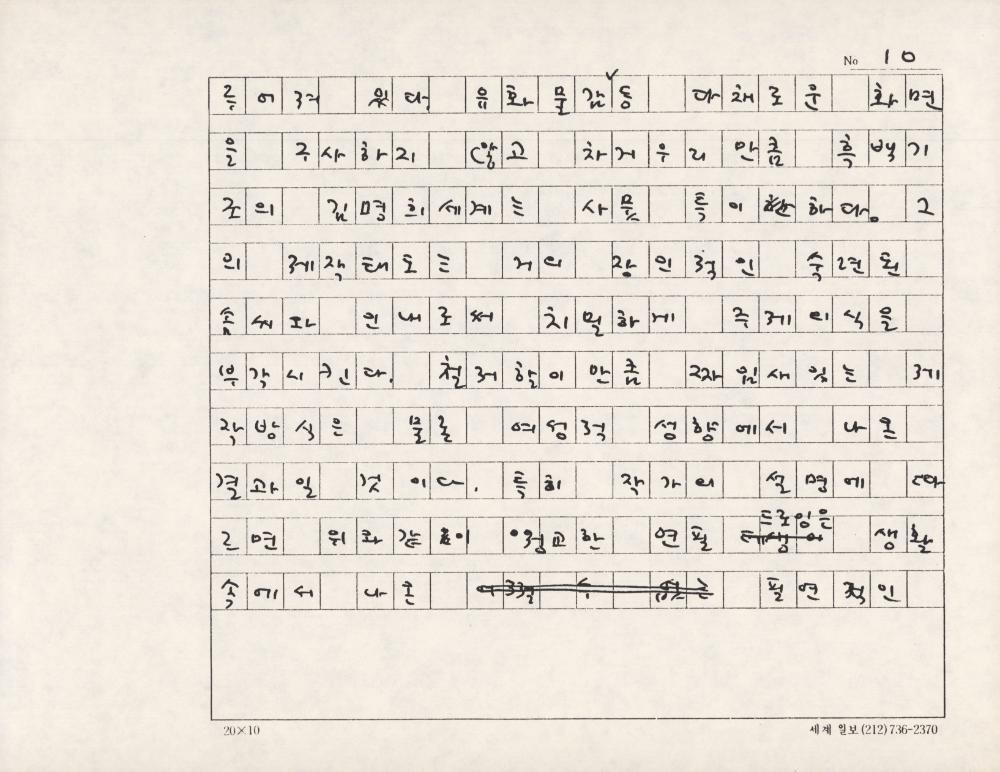 No 10
루어져 왔다. 유화물감 등 다채로운 화면
을 구사하지 않고 차거우리 만큼 흑백기
조의 김명희 세계는 사뭇 특이한 하다. 그
의 제작태도는 거의 장인적인 숙련된
솜씨와 인내로써 치밀하게 주제의식을
부각시킨다. 철저함이 만큼 짜임새있는 제
작방식은 물론 여성적 성향에서 나온
결과일 것이다. 특히 작가의 설명에 따
드로잉은
르면 위와 같이 정교한 연필 생활
속에서 나온 필연적인
20×10
세계 일보 (212) 736-2370